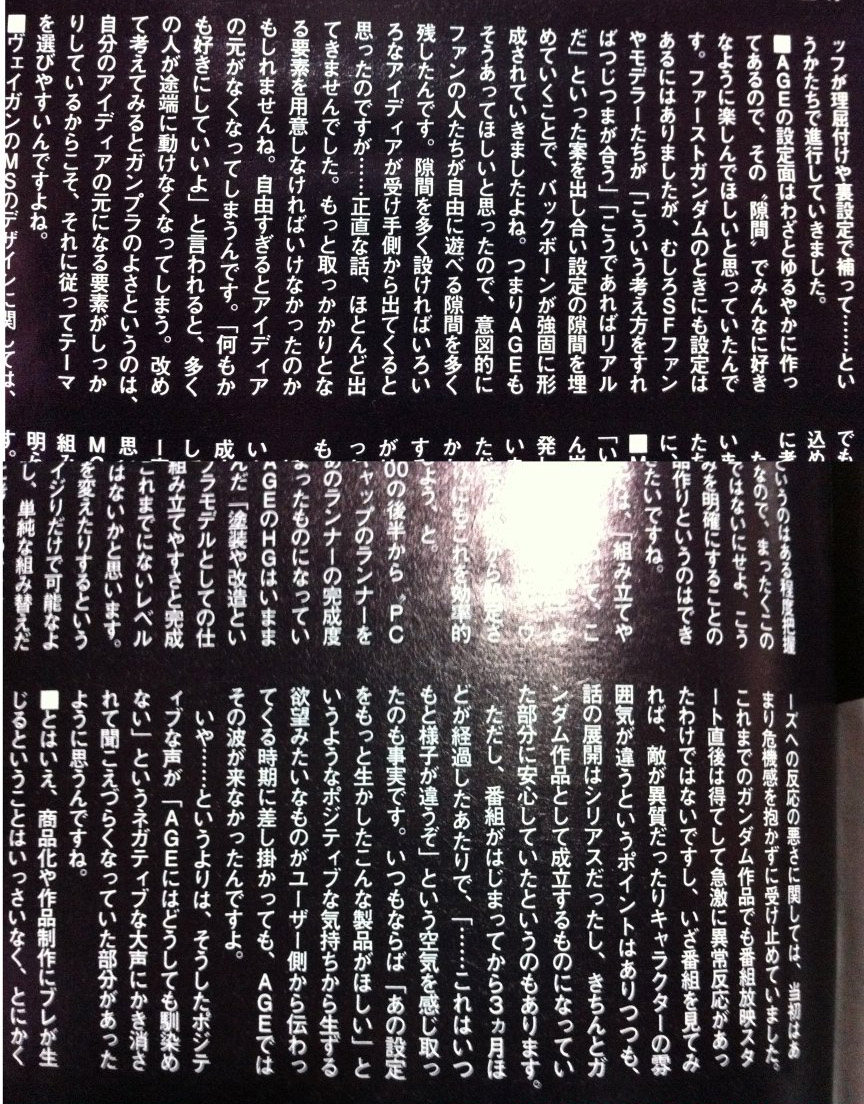 ッフが理屈付けや裏設定で補って……とい
うかたちで進行していきました。
■AGEの設定面はわざとゆるやかに作っ
てあるので、その〝隙間〟でみんなに好き
なように楽しんでほしいと思っていたんで
す。ファーストガンダムのときにも設定は
あるにはありましたが、むしろSFファン
やモデラーたちが「こういう考え方をすれ
ばつじつまが合う」「こうであればリアル
だ」といった案を出し合い設定の隙間を埋
めていくことで、バックボーンが強固に形
成されていきましたよね。つまりAGEも
そうあってほしいと思ったので、意図的に
ファンの人たちが自由に遊べる隙間を多く
残したんです。隙間を多く設ければいろい
ろなアイディアが受け手側から出てくると
思ったのですが……正直な話、ほとんど出
てきませんでした。もっと取っかかりとな
る要素を用意しなければいけなかったのか
もしれませんね。自由すぎるとアイディア
の元がなくなってしまうんです。「何もか
も好きにしていいよ」と言われると、多く
の人が途端に動けなくなってしまう。改め
て考えてみるとガンプラのよさというのは、
自分のアイディアの元になる要素がしっか
りしているからこそ、それに従ってテーマ
を選びやすいんですよね。
■ヴェイガンのMSのデザインに関しては、
でも
込め
に考
た
いま
たち
に、
■M
「い
ん
発
い
ただ
か
す
が
っ
も
い
成
し
ー
思
M
組み
明ら
す。
というのはある程度把握
なので、まったくこの
ではないにせよ、こう
みを明確にすることの
品作りというのはでき
たいですね。
は、「組み立てや
て、こ
と
から
けもこれを効率的
よう、と。
00の後半から〝PC
ャップのランナーを
あのランナーの完成度
まったものになってい
AGEのHGはいまま
んだ「塗装や改造とい
プラモデルとしての仕
組み立てやすさと完成
これまでにないレベル
はないかと思います。
を変えたりするという
イジりだけで可能なよ
し、単純な組み替えだ
ーズへの反応の悪さに関しては、当初はあ
まり危機感を抱かずに受け止めていました。
これまでのガンダム作品でも番組放映スタ
ート直後は得てして急激に異常反応があっ
たわけではないですし、いざ番組を見てみ
れば、敵が異質だったりキャラクターの雰
囲気が違うというポイントはありつつも、
話の展開はシリアスだったし、きちんとガ
ンダム作品として成立するものになってい
た部分に安心していたというのもあります。
ただし、番組がはじまってから3ヵ月ほ
どが経過したあたりで、「……これはいつ
もと様子が違うぞ」という空気を感じ取っ
たのも事実です。いつもならば「あの設定
をもっと生かしたこんな製品がほしい」と
いうようなポジティブな気持ちから生ずる
欲望みたいなものがユーザー側から伝わっ
てくる時期に差し掛かっても、AGEでは
その波が来なかったんですよ。
いや……というよりは、そうしたポジテ
ィブな声が「AGEにはどうしても馴染め
ない」というネガティブな大声にかき消さ
れて聞こえづらくなっていた部分があった
ように思うんですね。
■とはいえ、商品化や作品制作にブレが生
じるということはいっさいなく、とにかく